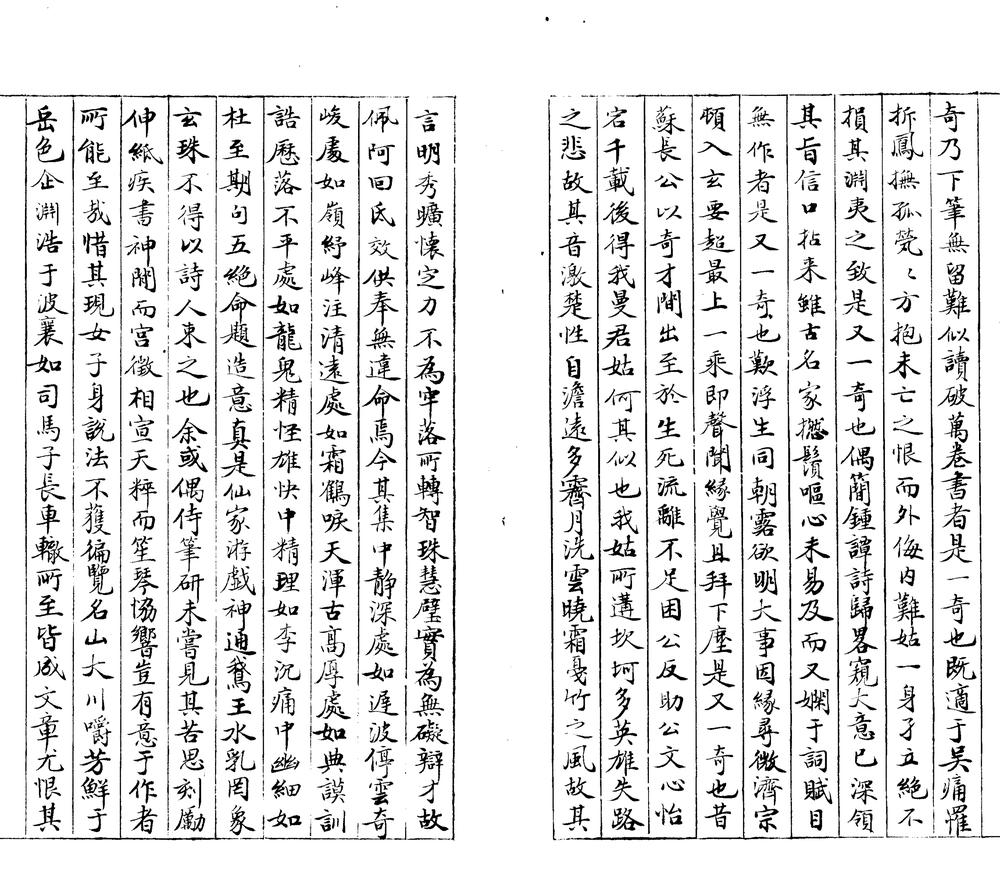 奇乃下筆無留難似讀破萬卷書者是一奇也既適于吴痛罹
折鳳撫孤煢〻方抱未亡之恨而外侮内難姑一身孑立絕不
損其淵夷之致是又一奇也偶簡鍾譚詩歸畧窺大意已深領
其旨信口拈来雖古名家撚鬚嘔心未易及而又嫻于詞賦目
無作者是又一奇也歎浮生同朝露欲明大事因緣尋微濟宗
頓入玄要超最上一乘即聲聞緣覺且拜下塵是又一奇也昔
蘇長公以奇才間出至於生死流離不足困公反助公文心怡
宕千載後得我曼君姑何其似也我姑所遘坎坷多英雄失路
之悲故其音激楚性自澹遠多霽月洗雲曉霜戞竹之風故其
言明秀曠懷定力不為牢落所轉智珠慧璧實為無礙辯才故
佩阿回氏效供奉無違命焉今其集中静深處如遅波停雲奇
峻處如嶺紆峰注清遠處如霜鶴唳天渾古高厚處如典謨訓
誥歷落不平處如龍鬼精怪雄快中精理如李沉痛中幽細如
杜至期句五絕命題造意真是仙家游戲神通鵞王水乳罔象
玄珠不得以詩人束之也余或偶侍筆研未嘗見其苦思刻勵
伸紙疾書神閒而宮徵相宣天粹而笙琴恊響豈有意于作者
所能至哉惜其現女子身說法不獲徧覽名山大川嚼芳鮮于
岳色企淵浩于波襄如司馬子長車轍所至皆成文章尤恨其